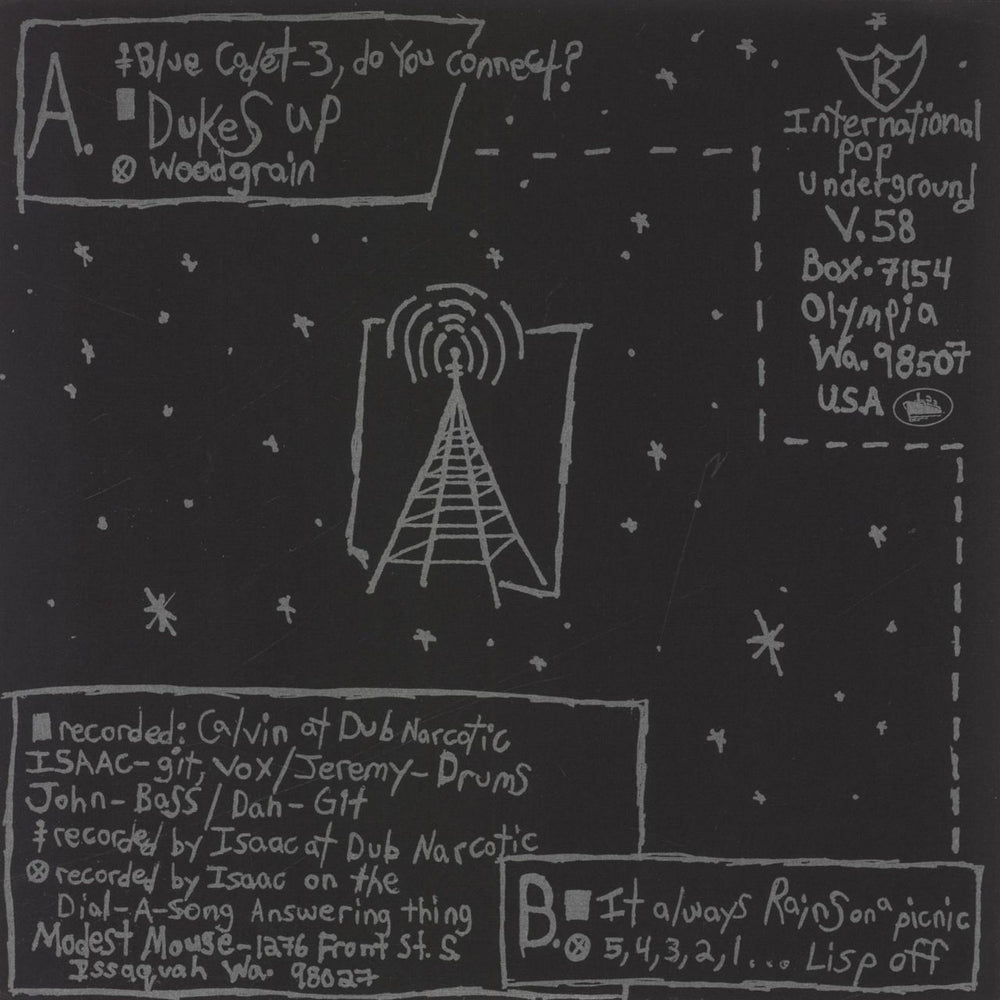 A.
‡Blue Cadet-3, do You connect?
■ Dukes up
⊗ Woodgrain
K
International
pop
Underground
V.58
Box.7154
Olympia
Wa.98507
U.S.A
■ recorded: Calvin at Dub Narcotic
ISAAC-git, vox/Jeremy-Drums
John-Bass/Dan-Git
‡ recorded by Isaac at Dub Narcotic
⊗ recorded by Isaac on the
Dial-A-song Answering thing
Modest Mouse-1276 Front St. S
Issaquah Wa. 98027
B.
■ It always Rains on a picnic
⊗ 5,4,3,2,1... Lisp off